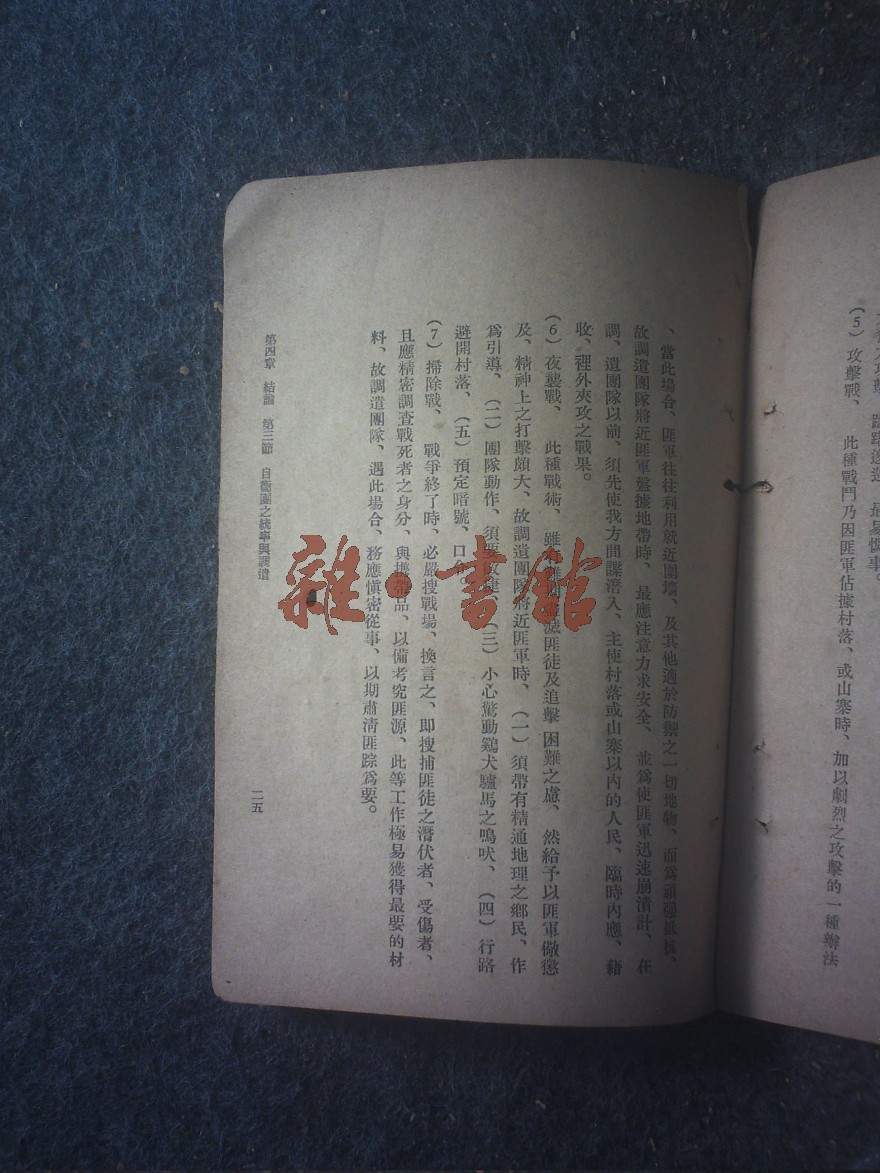 最易憤事。
（5）攻擊戰、 此種戰鬥乃因匪軍佔據村落、或山寨時、加以劇烈之攻擊的一種辦法
、當此場合、匪軍往往利用就近圍墻、及其他適於防禦之一切地物、而爲頑强抵抗、
故調遣團隊將近匪軍盤據地帶時、 最應注意力求安全、 並爲使匪軍迅速崩潰計、 在
調、遣團隊以前、須先使我方間諜潛入、主使村落或山寨以內的人民、臨時內應、藉
收、裡外夾攻之戰果。
（6）夜襲戰、 此種戰術、 雖有 滅匪徒及追擊困難之慮、 然給予以匪軍儆懲
及、精神上之打擊頗大、故調遣團隊將近匪軍時、（一）須帶有精通地理之鄉民、作
爲引導、（二）團隊動作、須要 、（三）小心驚動鷄犬驢馬之鳴吠、（四）行路
避開村落、（五）預定暗號、口令。
（7）掃除戰、 戰爭終了時、必嚴搜戰場、換言之、即搜捕匪徒之潛伏者、受傷者、
且應精密調查戰死者之身分、與攜帶品、以備考究匪源、此等工作極易獲得最要的材
料、故調遣團隊、遇此場合、務應愼密從事、以期肅淸匪踪爲要。
第四章 結論 第三節 自衞團之統率與調遣
二五
雜·書館